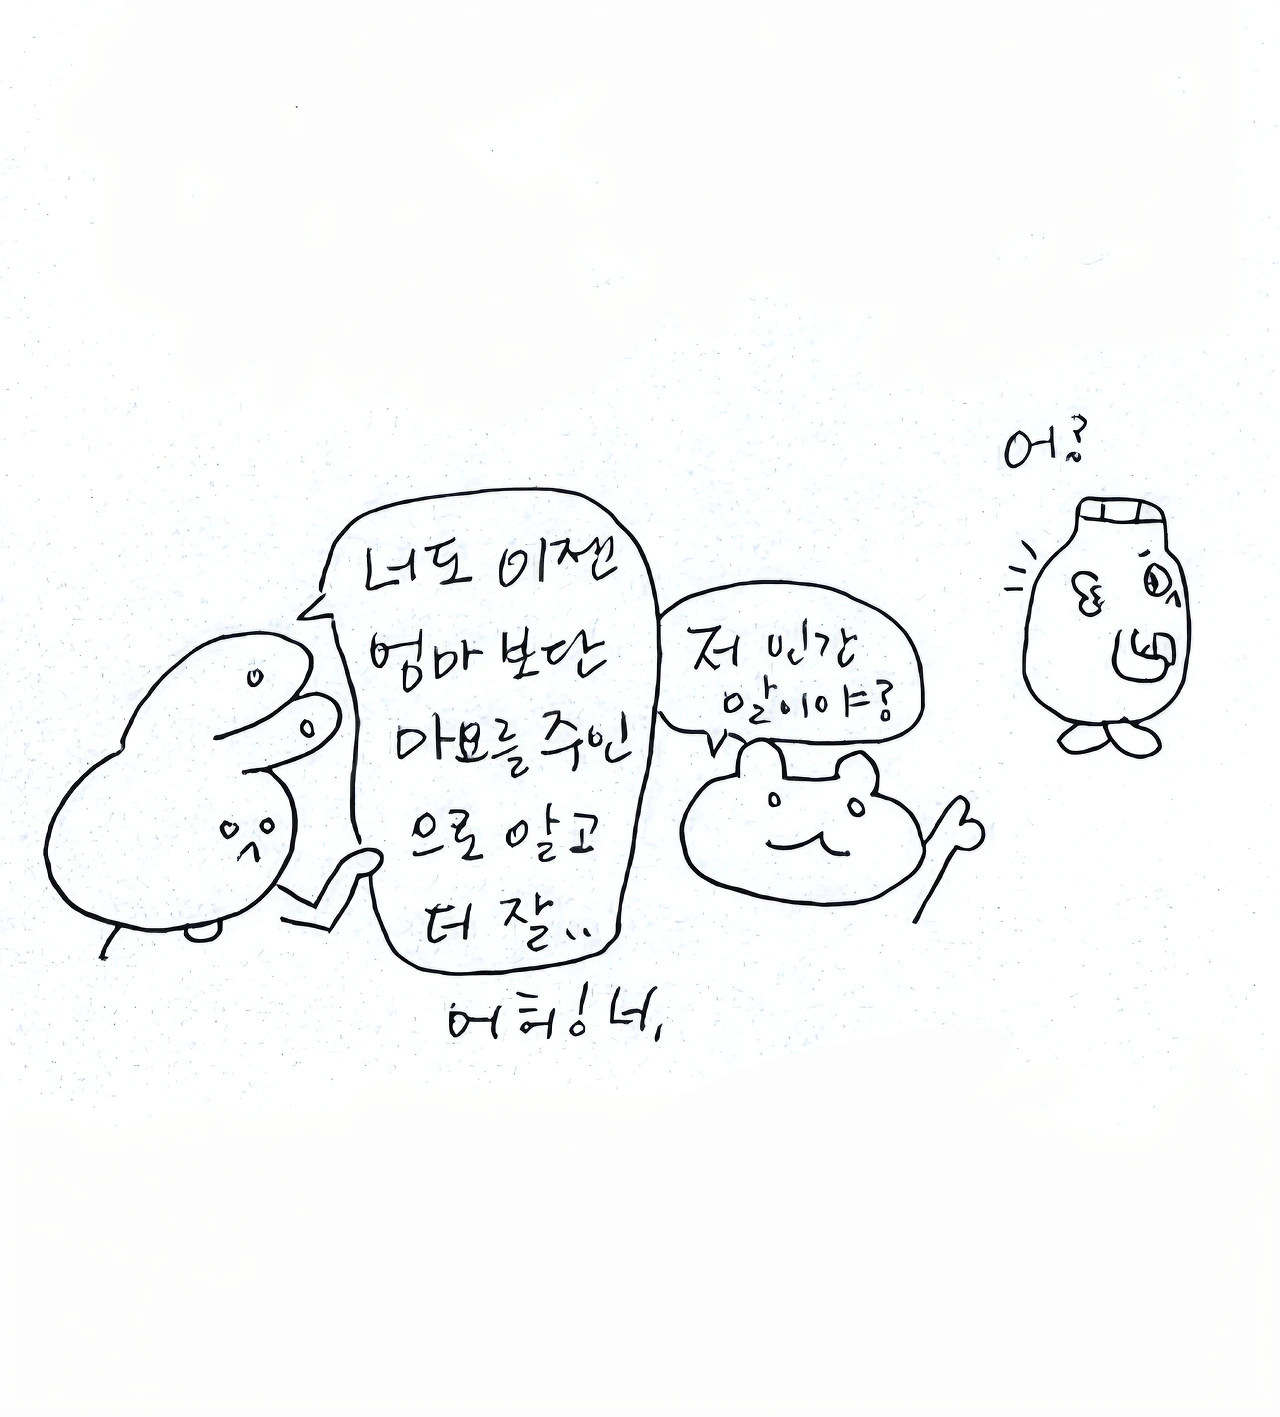 너도 이젠
엄마 보단
마요를 주인
으로 알고
더 잘..
저 인간
말이야?
어?
어허! 너,